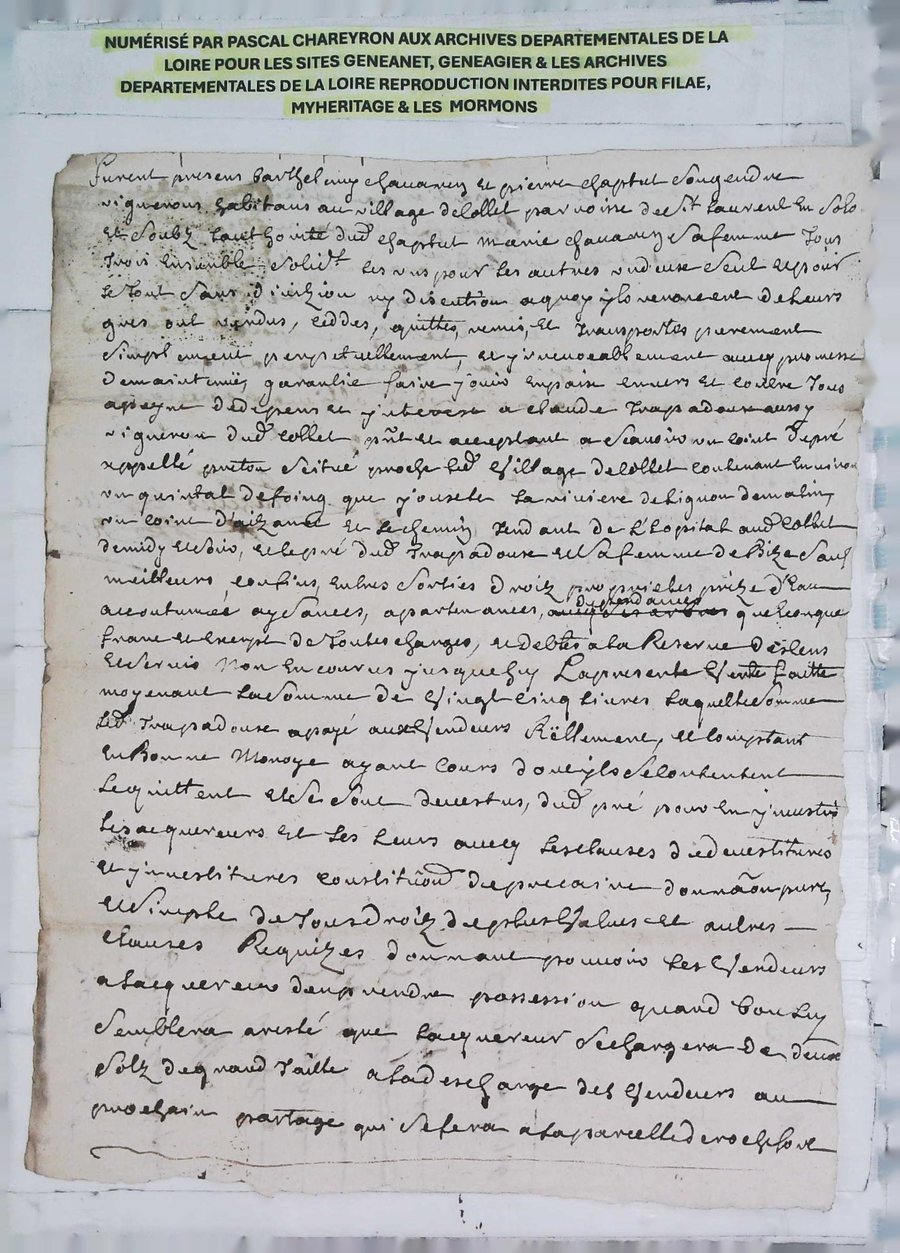 NUMÉRISÉ PAR PASCAL CHAREYRON AUX ARCHIVES DEPARTEMENTALES DE LA
LOIRE POUR LES SITES GENEANET, GENEAGIER & LES ARCHIVES
DEPARTEMENTALES DE LA LOIRE REPRODUCTION INTERDITES POUR FILAE,
MYHERITAGE & LES MORMONS
Furent presens barthelemy chauaren et pierre chaptut son gendre
vignerons habitans au village de Collet parroisse de St Laurent En Solo
Et Soubz dud chaptut marie chauaren Sa femme Tous
Trois Ensemble Solidt les uns pour les autres un deux Seul et pour
le Tout Sans diuizion ny discution a quoy ylz renoncent de leurs
grés ont vendus, ceddés, quittés, remis, Et Transportés purement
Simplement perpetuellement, et yrreuocablement auecq promesse
de maintenir garantie faire jouir En paix enuers Et contre Tous
a peyne de depens Et ynterest a claude Trapadoux aussy
vigneron dud Collet pnt Et acceptant a Scauoir un coint de pré
appellé Scitué proche led Village de Collet contenant Enuiron
un quintal de foing que jouxte la riuiere de Lignon de matin
un coint d'aizance Et le chemin Tendant de L'hopital aud Collet
de midy et Soir, et le pré dud Trapadoux et Sa femme de Bize Sauf
meilleurs confins, Entres Sorties droitz proprietes prize d'Eau
accoutumée aysances, apartenances, dependances quelconque
franc et Exempt de Toutes charges, et debtes a la Reserve des Cens
et Seruis Non Encourus jusques huy La presente Vente faitte
moyenant La Somme de Vingt Cinq liures Laquelle Somme
led Trapadoux a payé aux Vendeurs Rëllement, et Comptant
En Bonne Monoye ayant Cours dont ylz Se Contentent
Le quittent et Se Sont deuestus, dud pré pour En ynuestir
les acquereurs Et les Leurs auecq les clauses de deuestitures
et ynuestitures constituon de precaire donnaon pure,
et Simple de Tous droitz de plus Values et autres
clauses Requizes donnant pouuoir les Vendeurs
a Lacquereur d'en prendre possession quand bon luy
Semblera aresté que Lacquereur Se chargera de deux
Solz de grand Taille a la descharge des Vendeurs au
prochain partage qui Se fera a la parcelle de rochefort